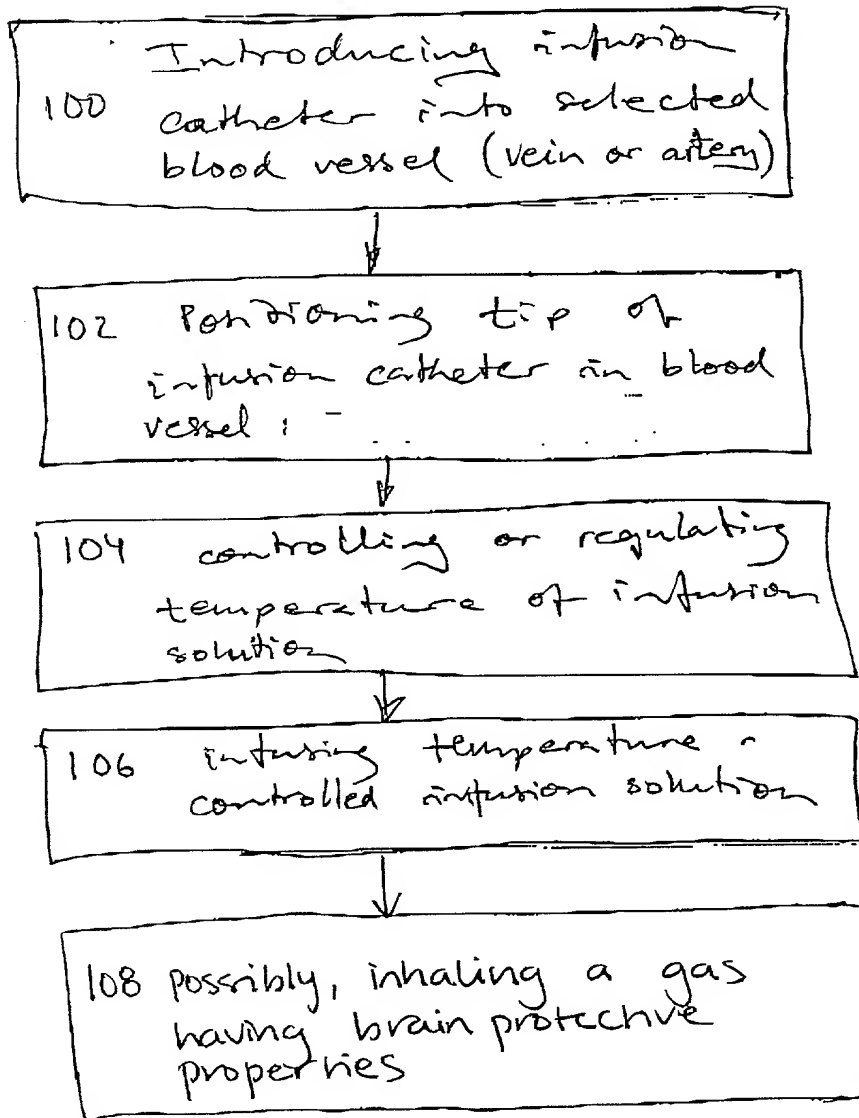 Introducing infusion
100 catheter into selected
blood vessel (vein or artery)
102 Positioning tip of
infusion catheter in blood
vessel
104 controlling or regulating
temperature of infusion
solution
106 infusing temperature -
controlled infusion solution
108 possibly, inhaling a gas
having brain protective
properties